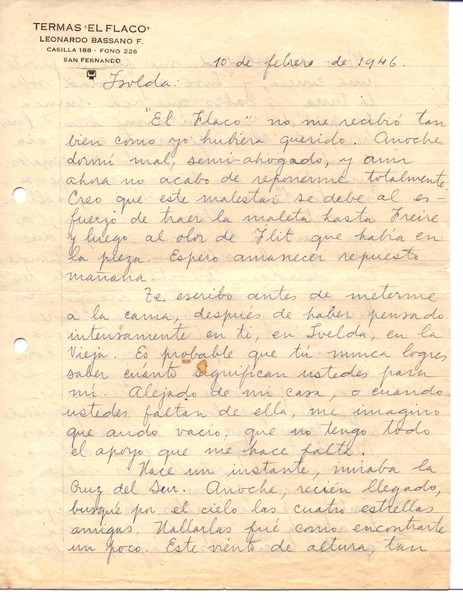 TERMAS "EL FLACO"
LEONARDO BASSANO F.
CASILLA 188 - FONO 226
SAN FERNANDO
10 de febrero de 1946.
Isolda:
"El Flaco" no me recibió tan
bien como yo hubiera querido. Anoche
dormí mal, semi-ahogado, y aun
ahora no acabo de reponerme totalmente.
Creo que este malestar se debe al es-
fuerzo de traer la maleta hasta Freire
y luego al olor de Flit que había en
la pieza. Espero amanecer repuesto
mañana.
Te escribo antes de meterme
a la cama, después de haber pensado
intensamente en ti, en Ivelda, en la
Vieja. Es probable que tú nunca logres
saber cuánto significan ustedes para
mí. Alejado de mi casa, o cuando
ustedes faltan de ella, me imagino
que ando vacío, que no tengo todo
el apoyo que me hace falta.
Hace un instante, miraba la
Cruz del Sur. Anoche, recién llegado,
busqué por el cielo las cuatro estrellas
amigas. Hallarlas fué como encontrarte
un poco. Este viento de altura, tan